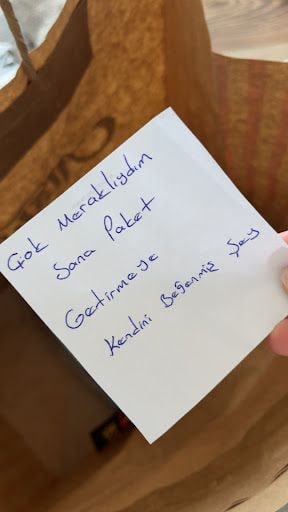 Çok Meraklıydım
Sana Paket
Getirmeye
Kendini Beğenmiş Şey